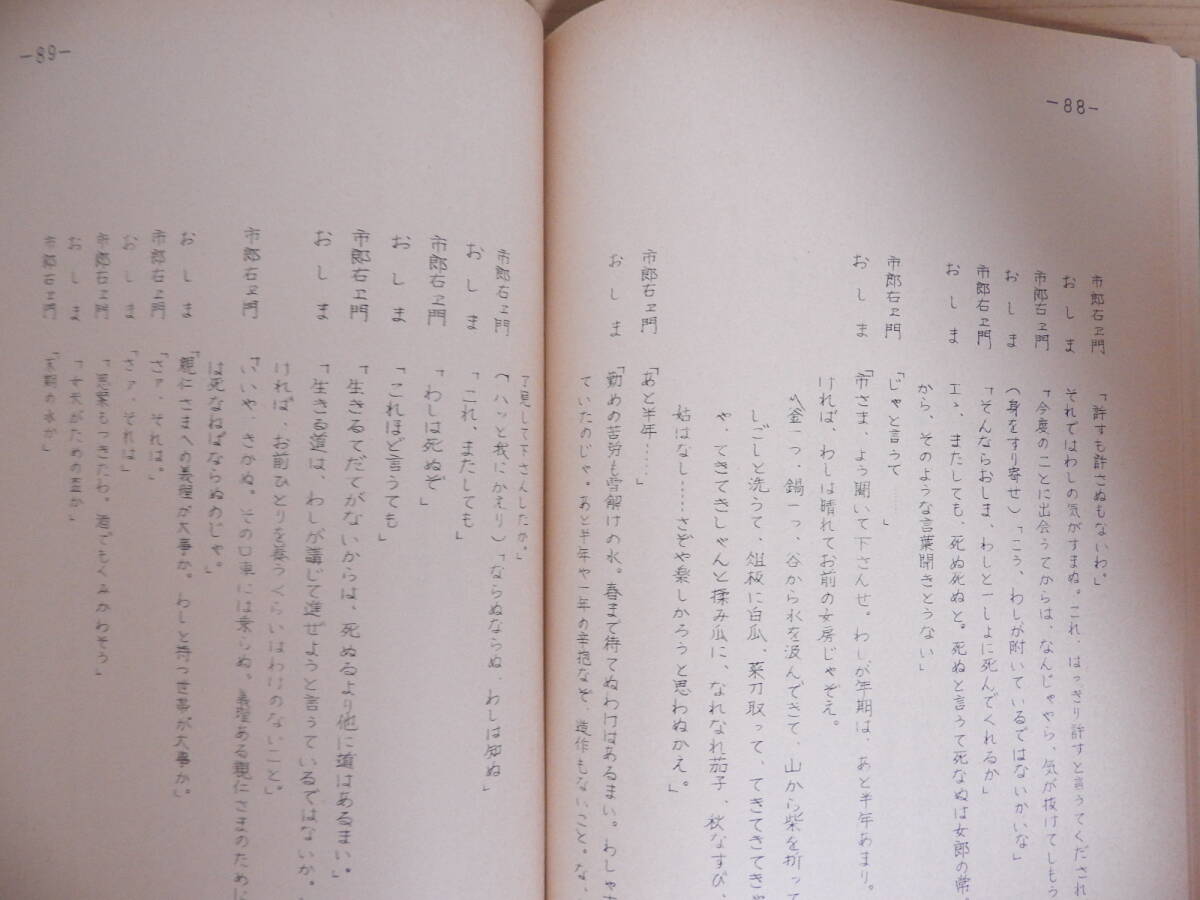 -88-
市郎右ヱ門 「許すも許さぬもないわ。」
おしま それではわしの気がすまぬ。これ、はっきり許すと言うてくだされ
市郎右ヱ門 「今度のことに出会うてからは、なんじゃやら、気が抜けてしもう
おしま (身をすり寄せ)「こう、わしが附いているではないかいな」
市郎右ヱ門 「そんならおしま、わしと一しょに死んでくれるか」
おしま エゝ、またしても、死ぬ死ぬと。死ぬと言うて死なぬは女郎の常。
から、そのような言葉聞きとうない」
市郎右ヱ門 「じゃと言うて……」
おしま 「市さま、よう聞いて下さんせ。わしが年期は、あと半年あまり。
ければ、わしは晴れてお前の女房じゃぞえ。
釜一つ・鍋一つ、谷から水を汲んできて、山から柴を折って
しごしと洗うて、俎板に白瓜、菜刀取って、てきてきてきゃ
や、てきてきしゃんと揉み瓜に、なれなれ茄子、秋なすび、
姑はなし……さぞや楽しかろうと思わぬかえ。」
市郎右ヱ門 「あと半年……」
おしま 「勤めの苦労も雪解けの水。春まで待てぬわけはあるまい。わしゃ
ていたのじゃ。あと半年や一年の辛抱なぞ、造作もないこと。な、
-89-
了見して下さんしたか。」
市郎右ヱ門 (ハッと我にかえり)「ならぬならぬ、わしは知ぬ
おしま 「これ、またしても」
市郎右ヱ門 「わしは死ぬぞ」
おしま 「これほど言うても」
市郎右ヱ門 「生きるてだてがないからは、死ぬるより他に道はあるまい。」
おしま 「生きる道は、わしが講じて進ぜようと言うているではないか。
ければ、お前ひとりを養うくらいはわけのないこと。」
市郎右ヱ門 「いいや、きかぬ。その口車には乗らぬ。義理ある親仁さまのため
は死なねばならぬのじゃ。」
おしま 「親仁さまへの義理が大事か。わしと持つ世帯が大事か。」
市郎右ヱ門 「さァ、それは。
おしま 「さァ、それは」
市郎右ヱ門 「思案もつきたわ。酒でもくみかわそう」
おしま 「女夫がための盃か」
市郎右ヱ門 「末期の水か」